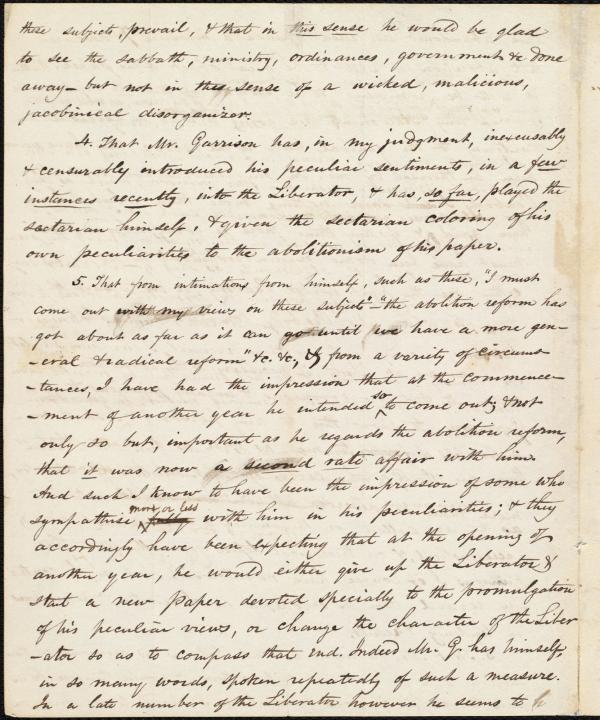 these subjects prevail, & that in this sense he would be glad
to see the sabbath, ministry, ordinances, government &c done
away – but not in the sense of a wicked, malicious,
jacobinical disorganizer.
4. That Mr. Garrison has, in my judgment, inexcusably
& censurably introduced his peculiar sentiments, in a few
instances recently, into the Liberator, & has, so far, played the
sectarian himself, & given the sectarian coloring of his
own peculiarities to the abolitionism of his paper.
5. That from intimations from himself, such as these, "I must
come out with my views on these subjects" – "the abolition reform has
got about as far as it can go until we have a more gen-
-eral & radical reform" &c. &c., & from a variety of circums-
-tances, I have had the impression that at the commence-
-ment of another year he intended so to come out; & not
only so but, important as he regards the abolition reform,
that it was now a second rate affair with him.
And such I know to have been the impression of some who
sympathise more or less with him in his peculiarities; & they
accordingly have been expecting that at the opening of
another year, he would either give up the Liberator &
start a new paper devoted specially to the promulgation
of his peculiar views, or change the character of the Liber
-ator so as to compass that end. Indeed Mr. G. has himself,
in so many words, spoken repeatedly of such a measure.
In a late number of the Liberator however he seems to